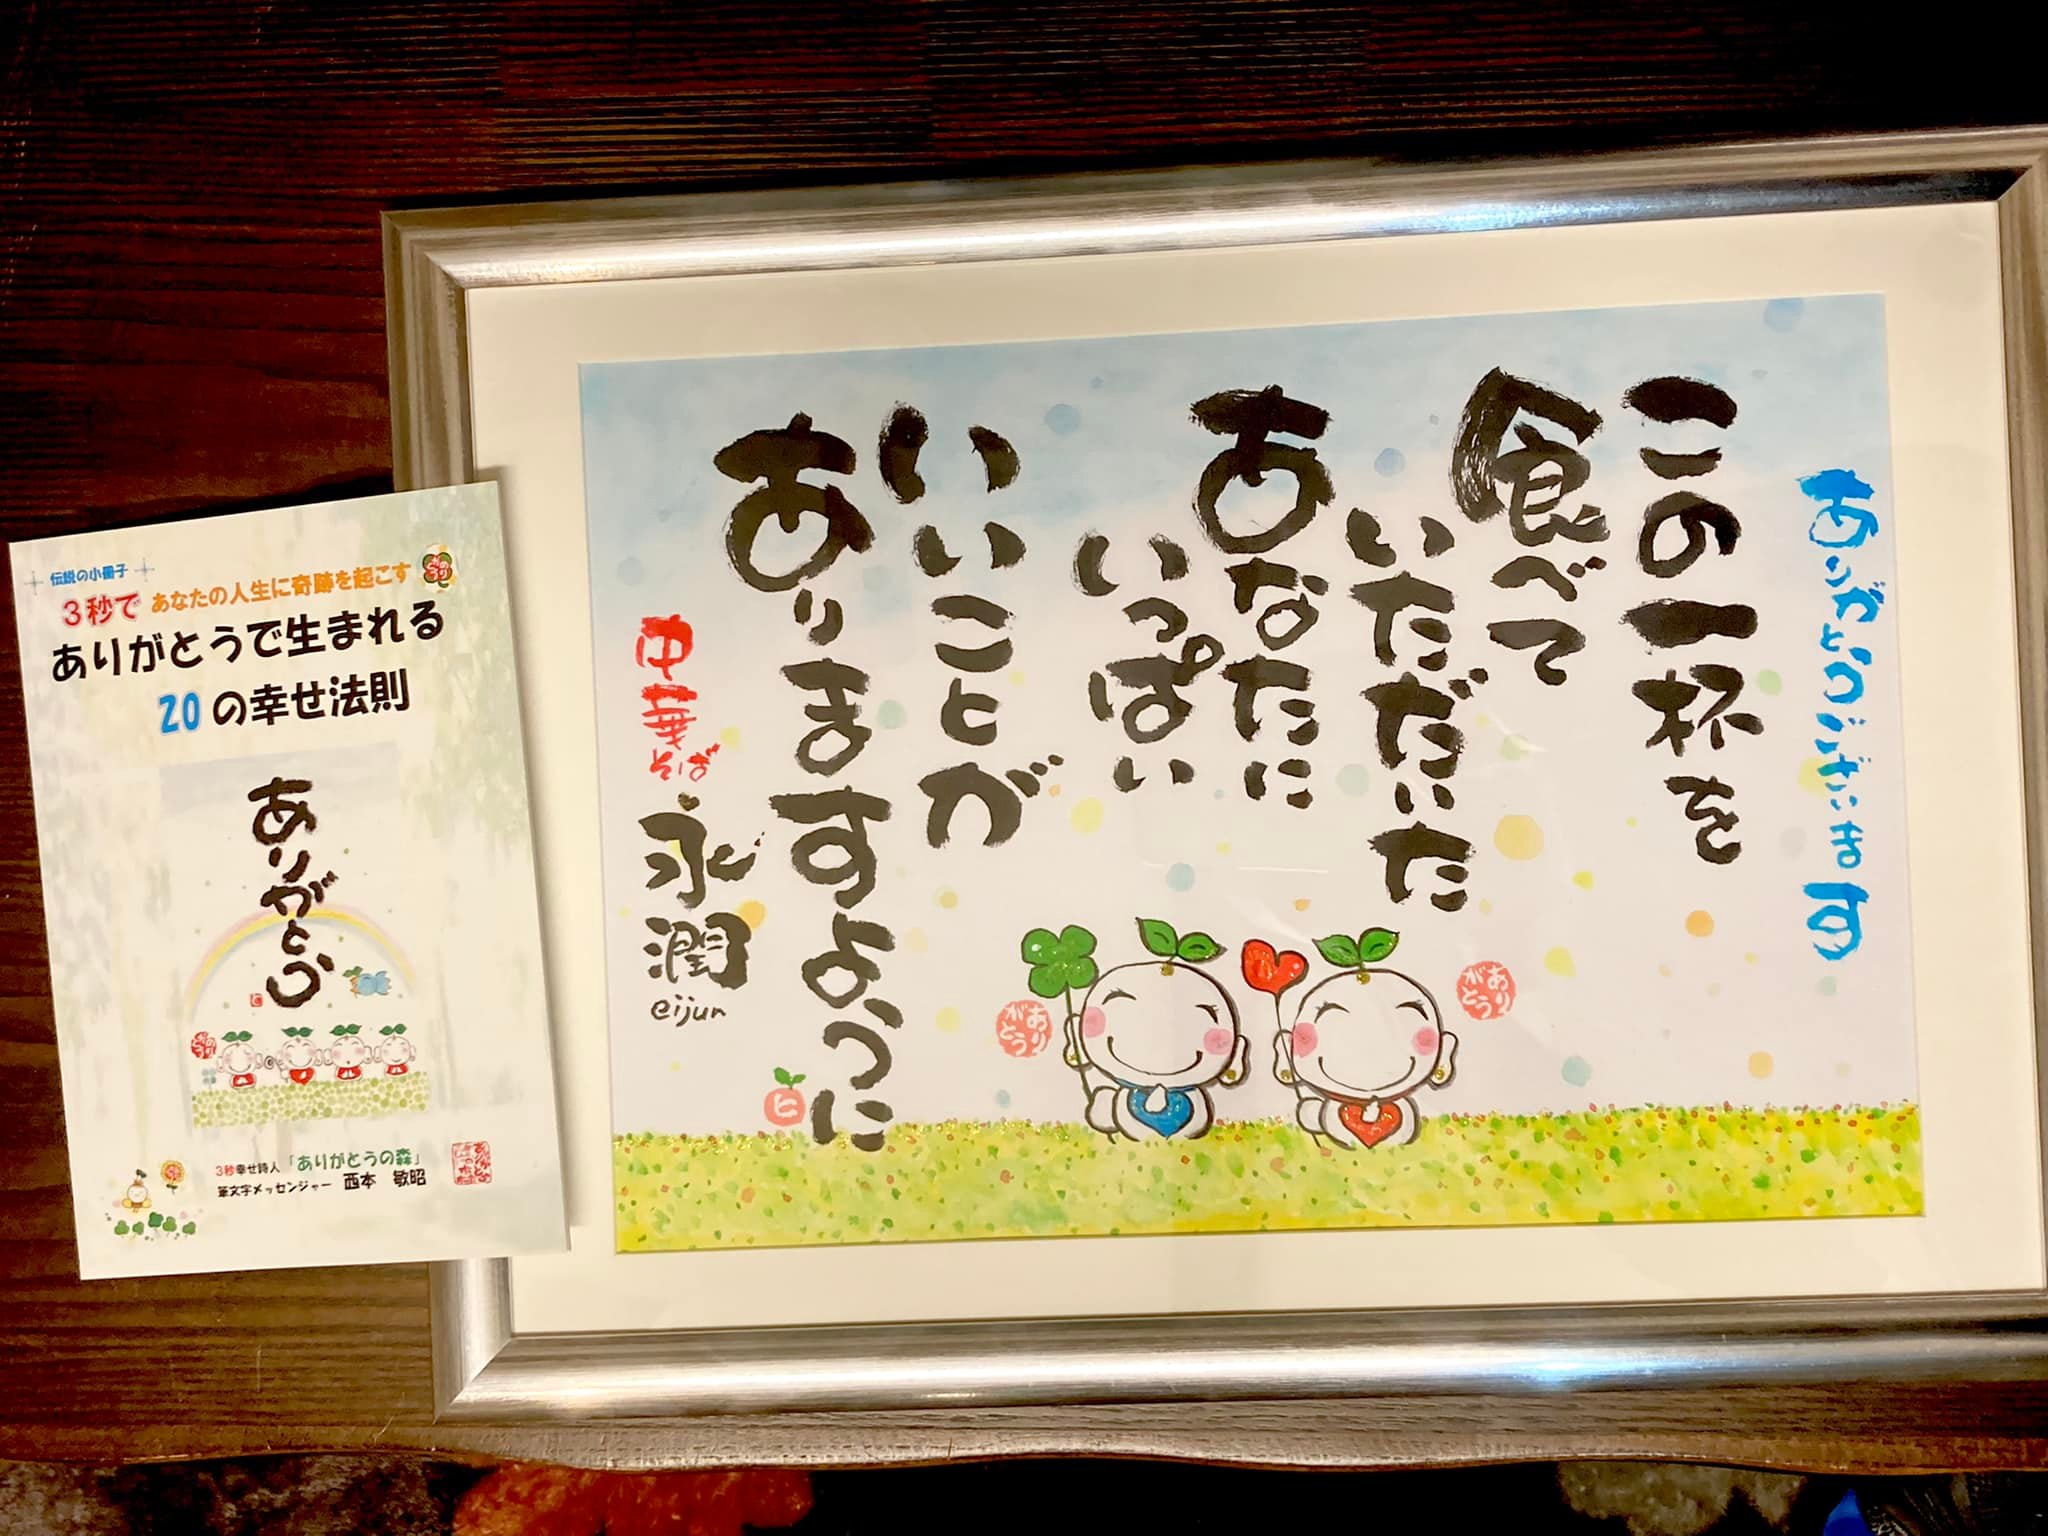 伝説の小冊子
3秒で あなたの人生に奇跡を起こす
ありがとうで生まれる
20の幸せ法則
ありがとう
ヒ
ありがとう
3秒幸せ詩人「ありがとうの森」
筆文字メッセンジャー 西本 敏昭
ありがとうございます
この一杯を
食べて
いただいた
あなたに
いっぱい
いいことが
ありますように
中華そば
永潤
eijun
ヒ
ありがとう
ありがとう